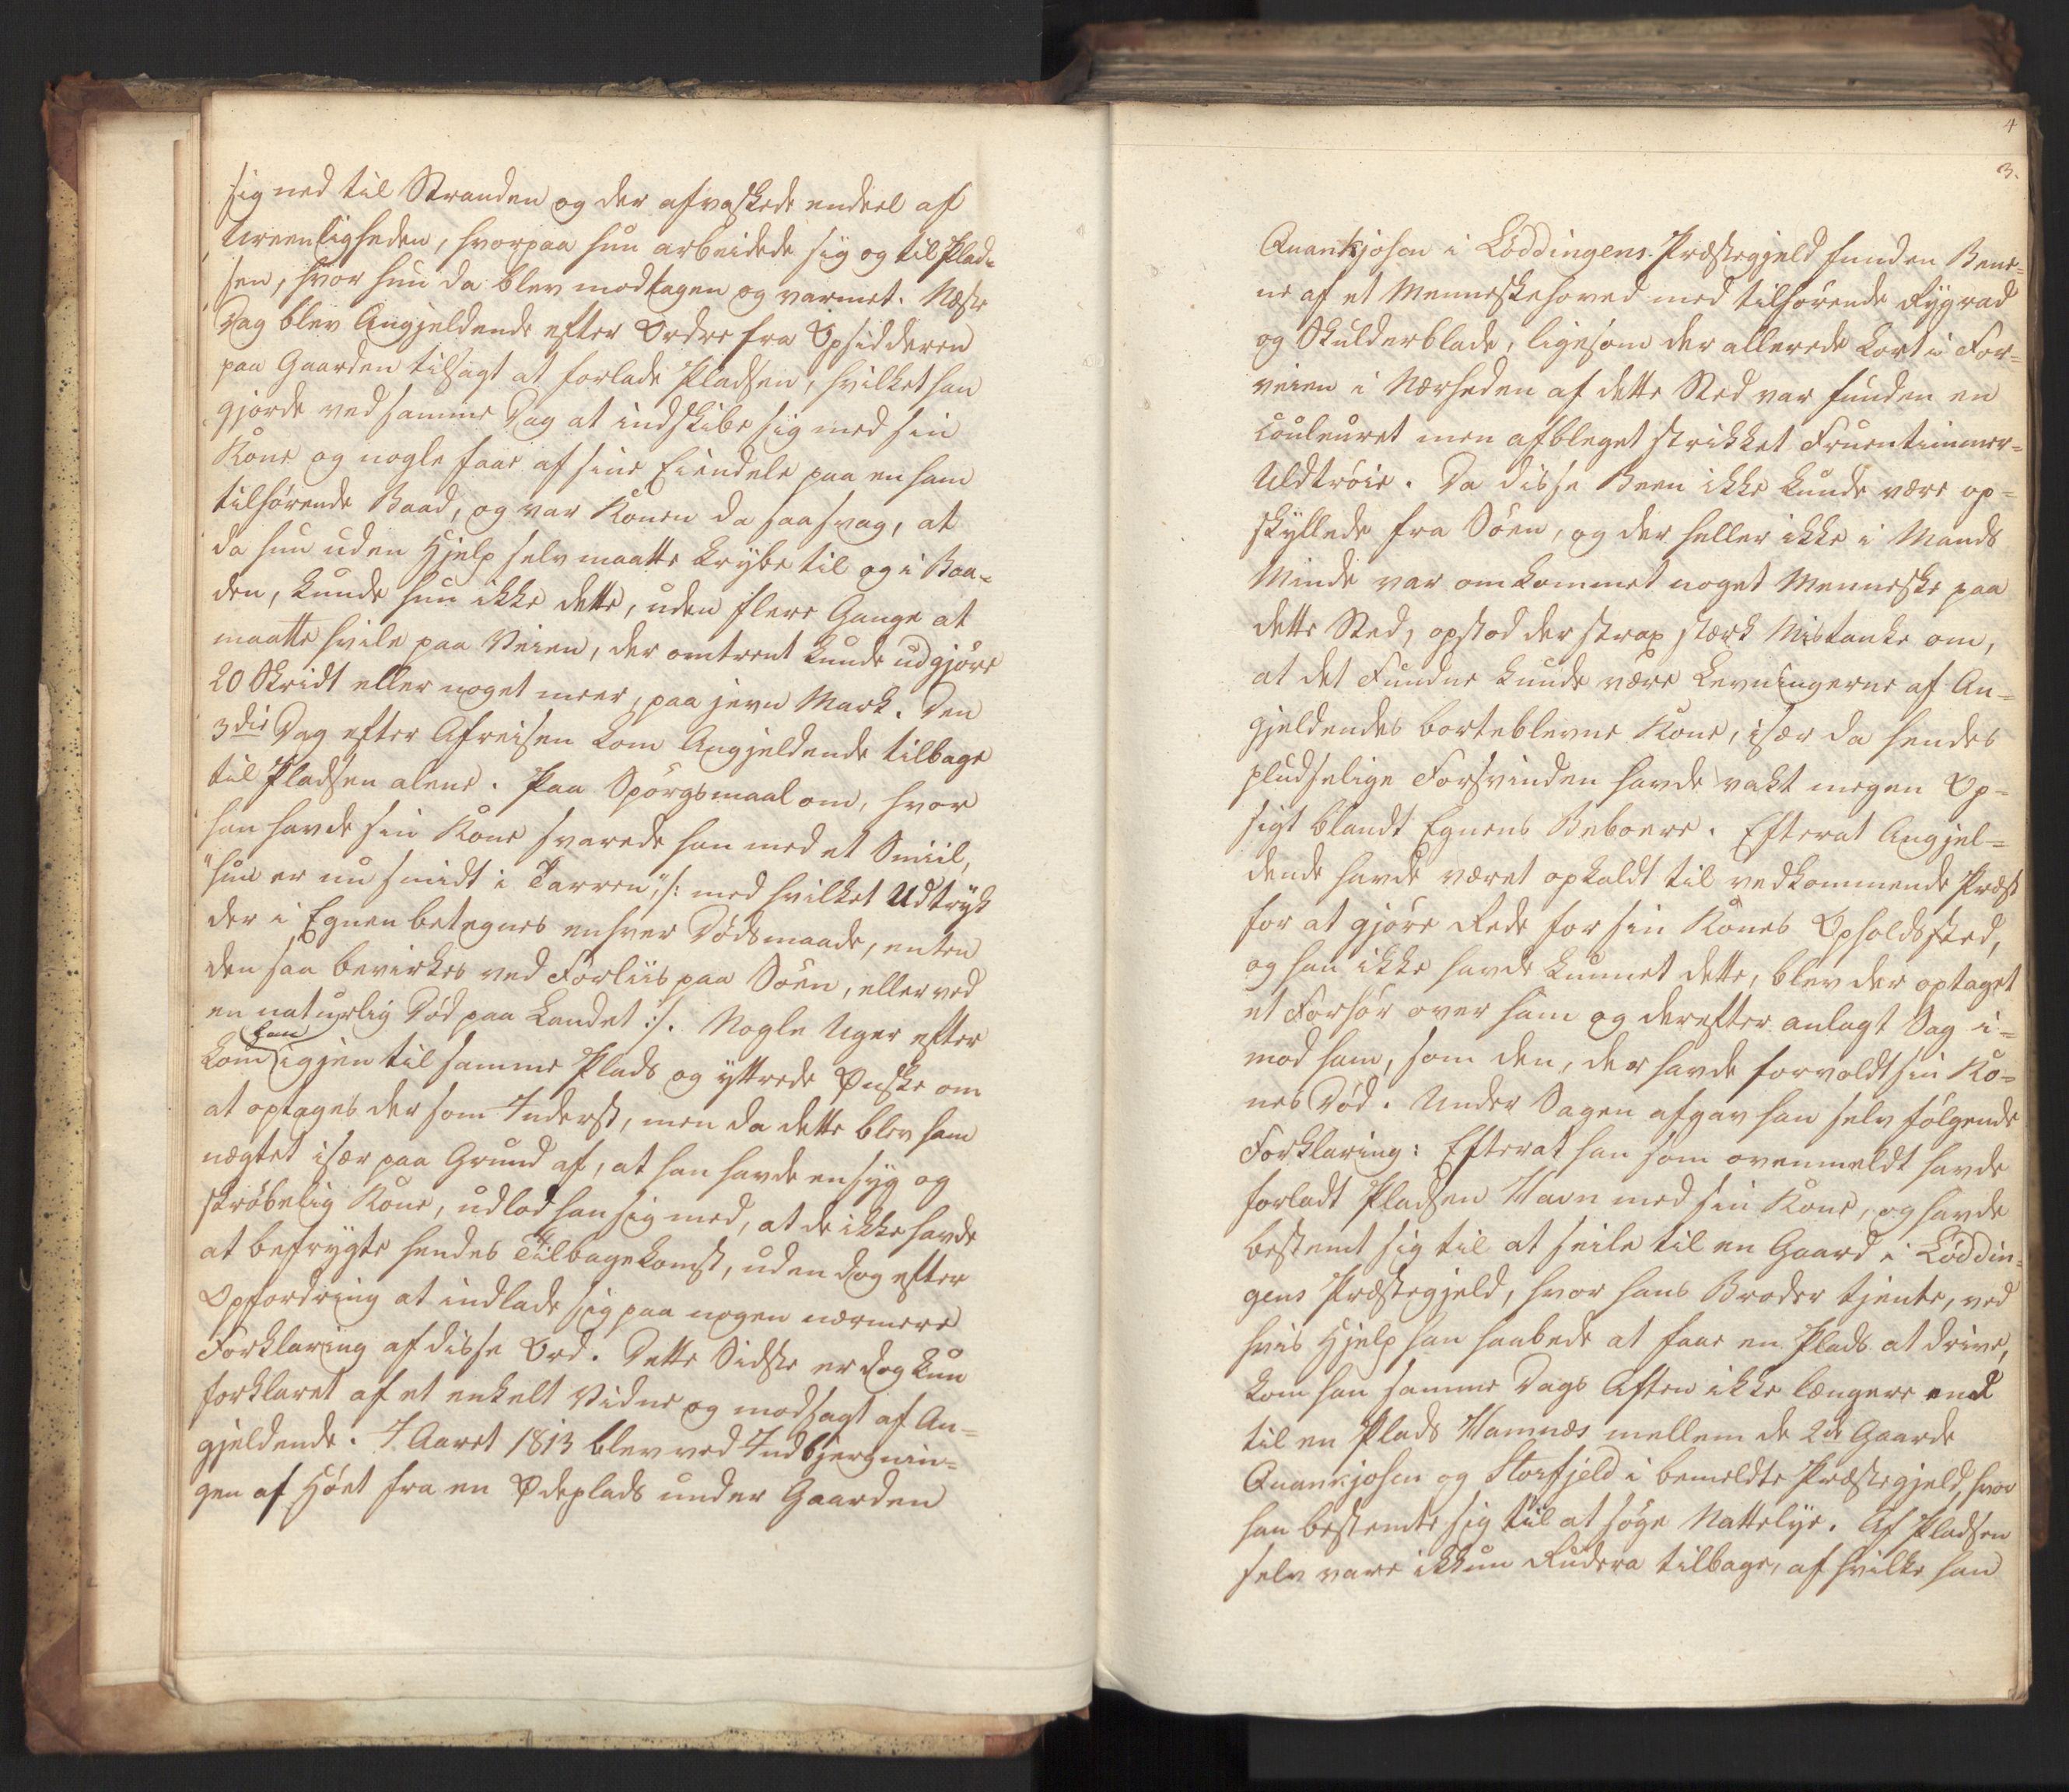 sig ned til Stranden og der afvaskede endeel af
Ureenligheden, hvorpaa hun arbeidede sig og til Plad-
sen, hvor hun da blev modtagen og varmet. Næste
Dag blev Angjeldende efter Ordre fra Opsidderen
paa Gaarden tilsagt at forlade Pladsen, hvilket han
gjorde ved samme Dag at indskibe sig med sin
Kone og nogle faae af sine Eiendele paa en ham
tilhørende Baad, og var Konen da saa svag, at
da hun uden Hjelp selv maatte krybe til og i Baa-
den, kunde hun ikke dette, uden flere Gange at
maatte hvile paa Veien, der omtrent kunde udgjøre
20 Skridt eller noget meer, paa jevn Mark. Den
3die Dag efter Afreisen kom Angjeldende tilbage
til Pladsen alene. Paa Spørgsmaal om, hvor
han havde sin Kone svarede han med et Smiil,
"hun er nu smidt i Tarren", /: med hvilket Udtryk
der i Egnen betegnes enhver Dødsmaade, enten
den saa bevirkes ved Forliis paa Søen, eller ved
en naturlig Død paa Landet :/. Nogle Uger efter
kom han igjen til samme Plads og yttrede Ønske om
at optages der som Inderst, men da dette blev ham
nægtet især paa Grund af, at han havde en syg og
skrøbelig Kone, udlod han sig med, at de ikke havde
at befrygte hendes Tilbagekomst, uden dog efter
Opfordring at indlade sig paa nogen nærmere
Forklaring af disse Ord. Dette Sidste er dog kun
forklaret af et enkelt Vidne og modsagt af An-
gjeldende. I Aaret 1813 blev ved Indbjergnin-
gen af Høet fra en Ødeplads under Gaarden
4
3.
Quankjosen i Løddingens Præstegjeld funden Bene-
ne af et Menneskehoved med tilhørende Rygrad
og Skulderblade, ligesom der allerede kort i For-
veien i Nærheden af dette Sted var funden en
couleuret men afbleget strikket Fruentimmer-
Uldtrøie. Da disse Been ikke kunde være op-
skyllede fra Søen, og der heller ikke i Mands
Minde var omkommet noget Menneske paa
dette Sted, opstod der strax stærk Mistanke om,
at det Fundne kunde være Levningerne af An-
gjeldendesborteblevne Kone, især da hendes
pludselige Forsvinden havde vakt megen Op-
sigt blandt Egnens Beboere. Efterat Angjel-
dende havde været opkaldt til vedkommende Præst
for at gjøre Rede for sin Kones Opholdssted,
og han ikke havde kunnet dette, blev der optaget
et Forhør over ham og derefter anlagt Sag i-
mod ham, som den, der havde forvoldt sin Ko-
nes Død. Under Sagen afgav han selv følgende
Forklaring: Efterat han som ovenmeldt havde
forladt Pladsen Havn med sin Kone, og havde
bestemt sig til at seile til en Gaard i Løddin-
gens Præstegjeld, hvor hans Broder tjente, ved
hvis Hjelp han haabede at faae en Plads at drive,
kom han samme Dags Aften ikke længere end
til en Plads Hamnæs mellem de 2de Gaarde
Quankjosen og Storfjeld i bemeldte Præstegjeld, hvor
han bestemte sig til at søge Nattelye. Af Pladsen
selv vare ikkun Rudera tilbage, af hvilke han